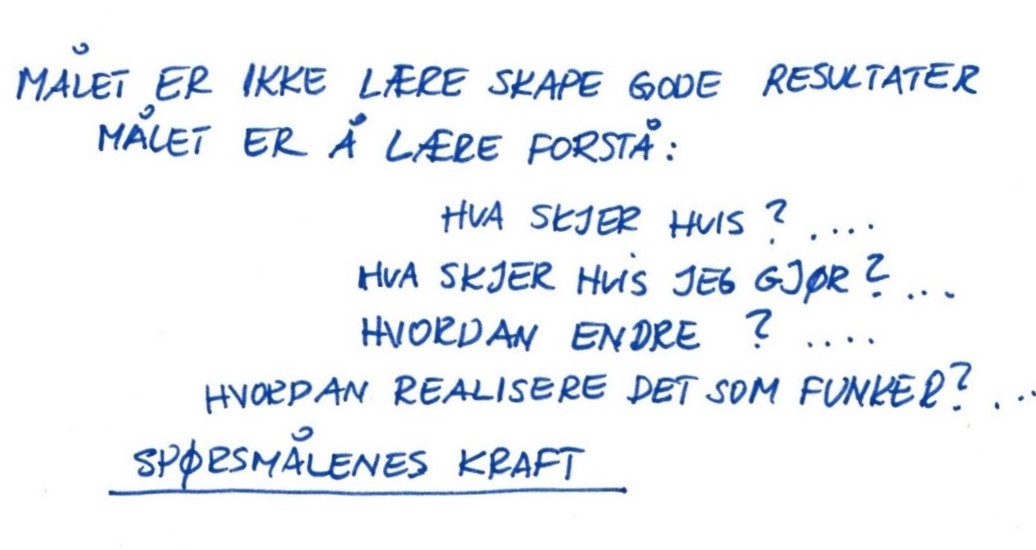 MÅLET ER IKKE LÆRE SKAPE GODE RESULTATER
MÅLET ER Å LÆRE FORSTÅ:
HVA SKJER HVIS ? ....
HVA SKJER HVIS JEG GJØR ? ...
HVORDAN ENDRE ? ....
HVORDAN REALISERE DET SOM FUNKER? ...
SPØRSMÅLENES KRAFT